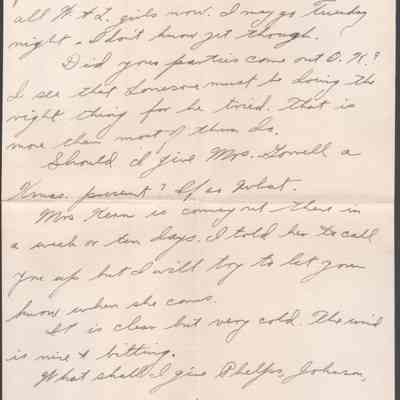 all W. & L. girls now. I may go Tuesday
night - I don't know yet though.
Did your parties come out O.K.?
I see that must be doing the
right thing for he tired. that is
more than most of them do.
Should I give Mrs. a
Xmas. present? If so What.
Mrs Kern is coming out there in
a week or ten days. I told her to call
you up but I will try to let you
know when she comes.
It is clear but very cold. The wind
is nice & bitting.
What shall I give Phelps, Johnson,